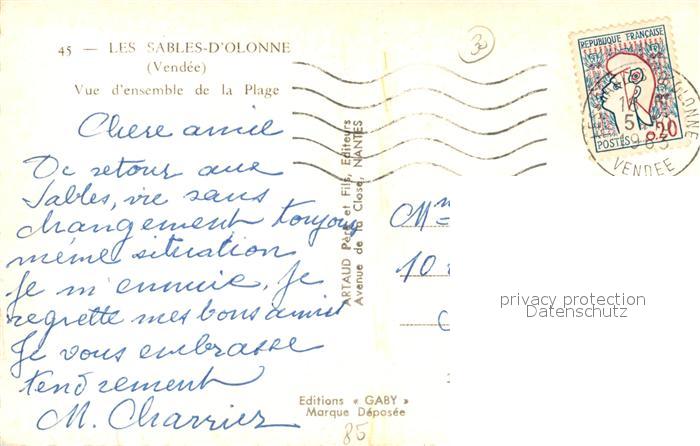 45 — LES SABLES-D'OLONNE
(Vendée)
Vue d'ensemble de la Plage
Chere amie
De retour aux
Sables, vie sans
changement toujours
même situation
Je m'ennuie, Je
regrette mes bons amis
Je vous embrasse
tendrement
M. Charrier
ARTAUD Père et Fils, Editeurs
Avenue de la Close, NANTES
Editions « GABY »
Marque Déposée
30
85
REPUBLIQUE FRANÇAISE
0,20
POSTES
OLONNE
16
5
1963
VENDEE
Mme
10
privacy protection
Datenschutz